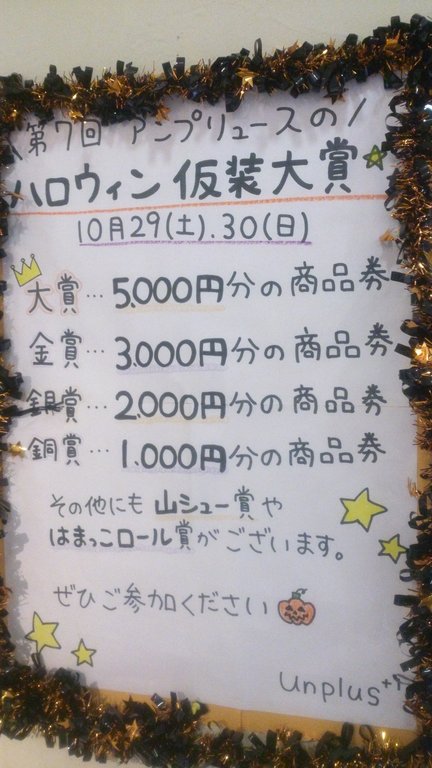 \第7回 アンプリュースの/
ハロウィン仮装大賞
10月29(土).30(日)
大賞…5,000円分の商品券
金賞…3,000円分の商品券
銀賞…2,000円分の商品券
銅賞…1,000円分の商品券
その他にも 山シュー賞や
はまっこロール賞がございます。
ぜひご参加ください
unplus++